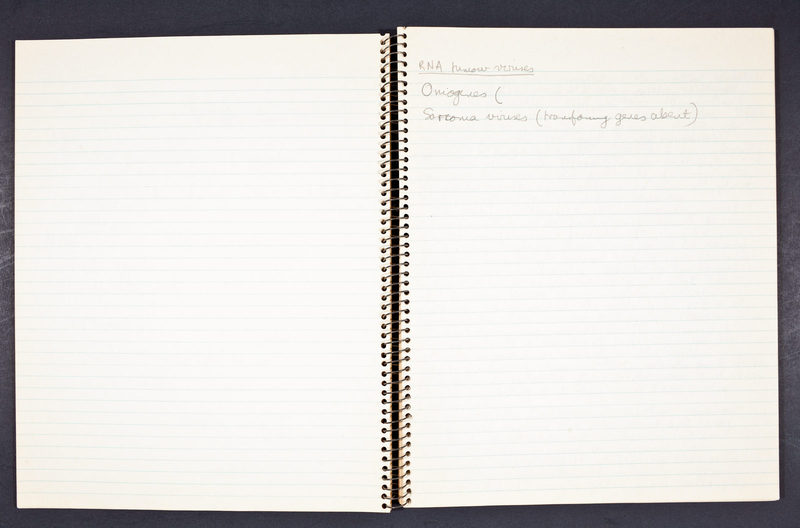 RNA tumour viruses
Oncogenes (
Sarcoma viruses (transforming genes absent)